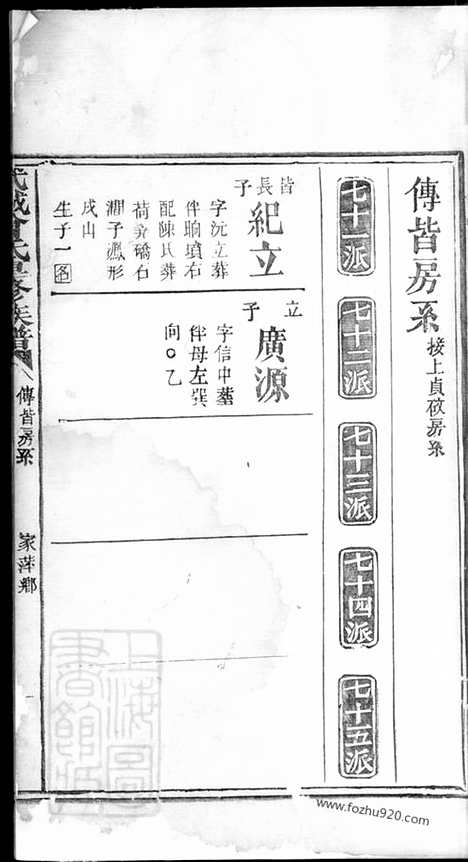 傳皆房系 接上貞政房系
七十一派
七十二派
七十三派
七十四派
七十五派
皆長子
紀立
字沅立葬
伴晌墳右
配陳氏葬
荷
石
潤子
形
戌山
生子一
立子
廣源
字信中葬
伴母左巽
向〇乙
武城曾氏重修族譜
傳皆房系
家萍鄉
上海圖書館藏
www.fozhu920.com